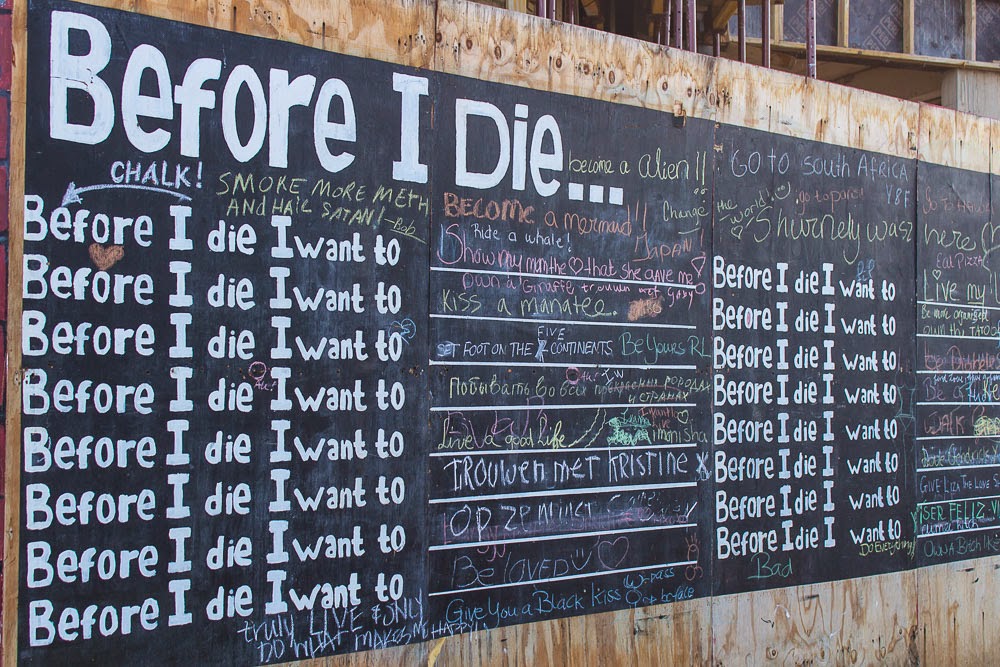 Before I Die...
CHALK!
SMOKE MORE METH
AND HAIL SATAN! -Bob
become a Alien!!
BECOME a mermaid!!
Change
the world!
JAPAN
Ride a whale!
Show my mom the ♡ that she gave me ♡
Own a Giraffe trouwn met Gaby
Kiss a manatee.
FIVE
SET FOOT ON THE CONTINENTS Be Yours RL
побывать во всех городах
и странах
Live a good life
I want to
live
imoni sha
TROUWEN MET KRISTINE X
OP ZEN
Be loved ♡
Give You a Black Kiss
Before I die I want to
Before I die I want to
Before I die I want to
Before I die I want to
Before I die I want to
Before I die I want to
Before I die I want to
Before I die I want to
truly LIVE & ONLY
DO WHAT MAKES ME HAPPY!
GO to south AFRICA
go to paris!
BF
Shurnely was
here
Before I die I want to
Before I die I want to
Before I die I want to
Before I die I want to
Before I die I want to
Before I die I want to
Before I die I want to
Before I die I want to
DO EVERYTHING!
Bad
Eat PIZZA
Live my
Be more organised
own thy
WALK
GIVE LIZA THE LOVE
SER FELIZ
OWN A Bitch